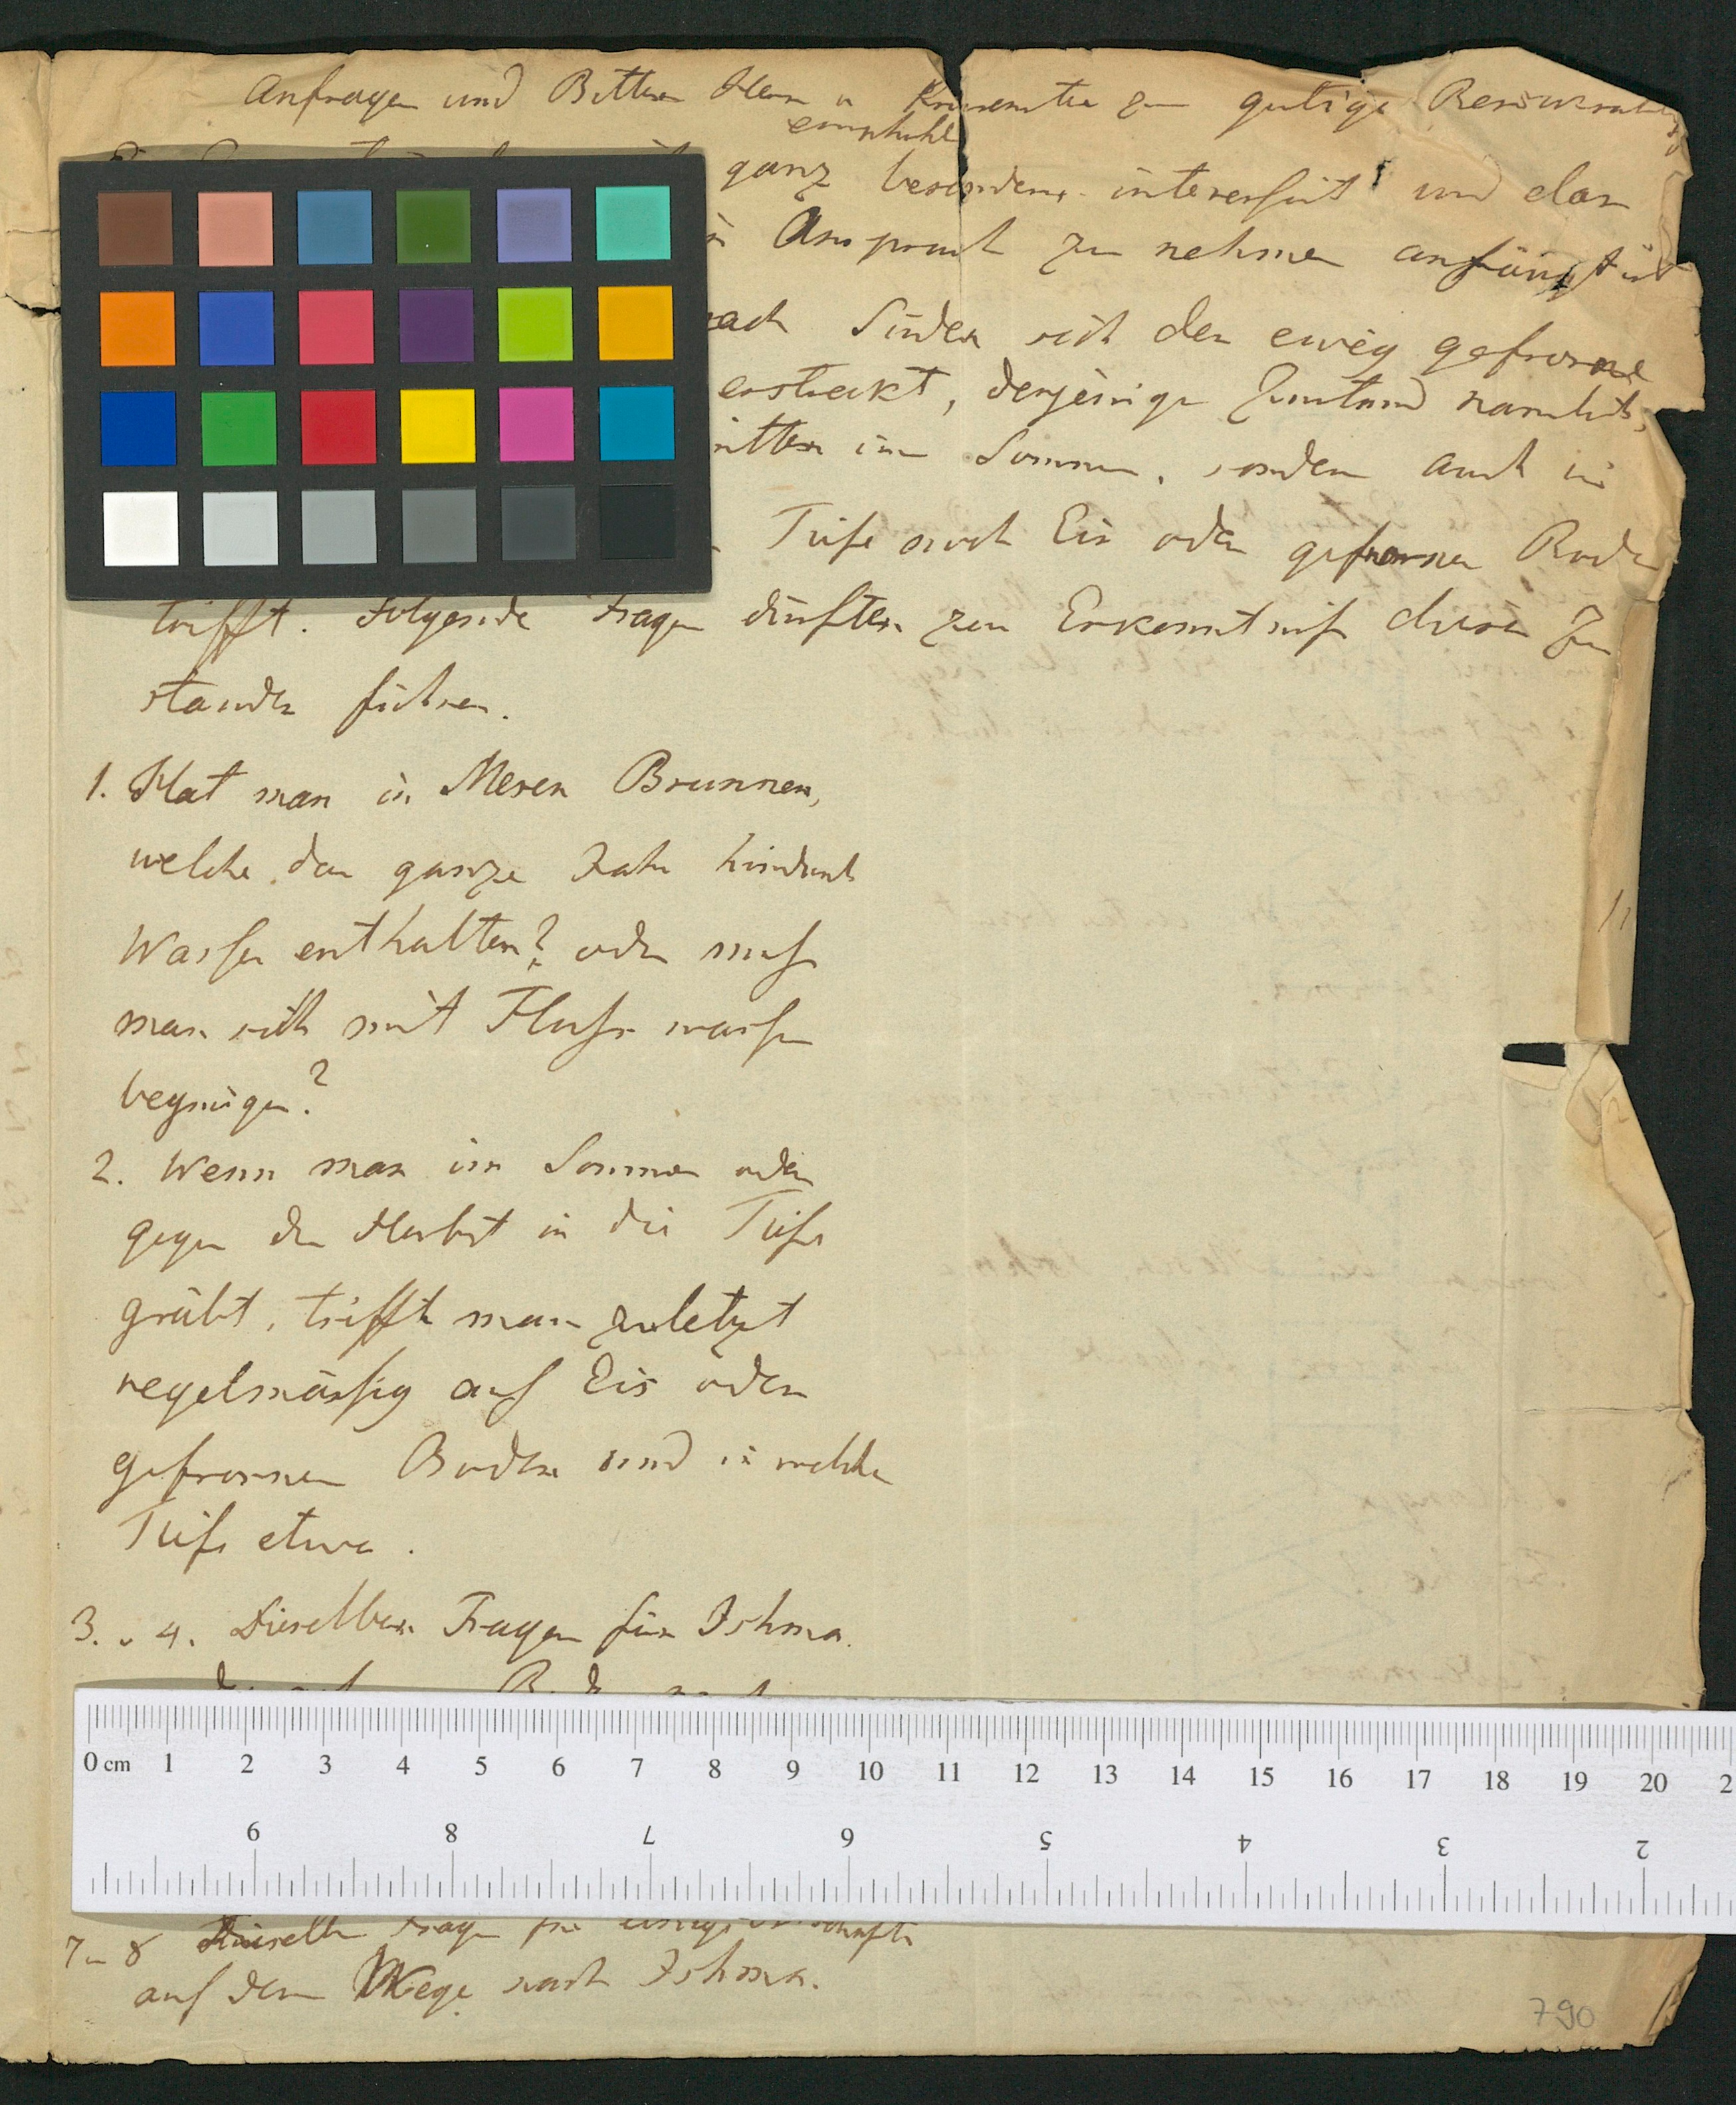 Anfragen und Bitten Herrn v Krusenstern zur gütige Beantwortung
empfohlen
ganz besonders interessirt und das
in Anspruch zu nehmen anfängt ist
nach Süden sich der ewig gefrorne
erstreckt, derjenige Zustand namlich,
mitten im Sommer, sondern auch in
Tiefe noch Eis oder gefrornen Boden
trifft. Folgende Fragen dürften zur Erkenntniß dieses Zu
standes führen.
1. Hat man in Mesen Brunnen,
welche das ganze Jahr hindurch
Wasser enthalten? oder muß
man sich mit Flußwasser
begnügen?
2. Wenn man im Sommer oder
gegen den Herbst in die Tiefe
gräbt, trifft man zuletzt
regelmäßig auf Eis oder
gefrornen Boden und in welcher
Tiefe etwa.
3. u 4. Dieselben Fragen für Ishma.
0 cm 1 2 3 4 5 6 7 8 9 10 11 12 13 14 15 16 17 18 19 20 2
9 8 7 6 5 4 3 2
7 u 8 Dieselben Fragen für
auf dem Wege nach Ishma.
790